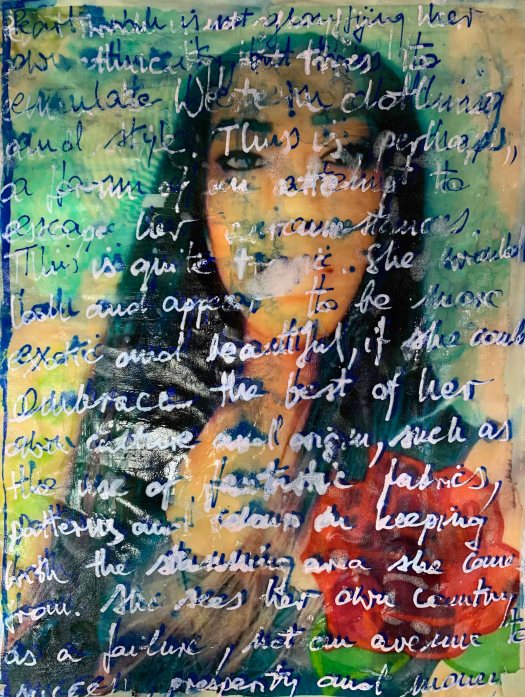 heart which is not glorifying her
own ethnicity but tries to
emulate Western clothing
and style. This is perhaps,
a form of an attempt to
escape her circumstances.
This is quite tragic. She would
look and appear to be more
exotic and beautiful, if she could
embrace the best of her
own culture and origin, such as
the use of fantastic fabrics,
patterns and colours in keeping
with the stunning area she came
from. She sees her own country
as a failure, not an avenue to
success, prosperity and money